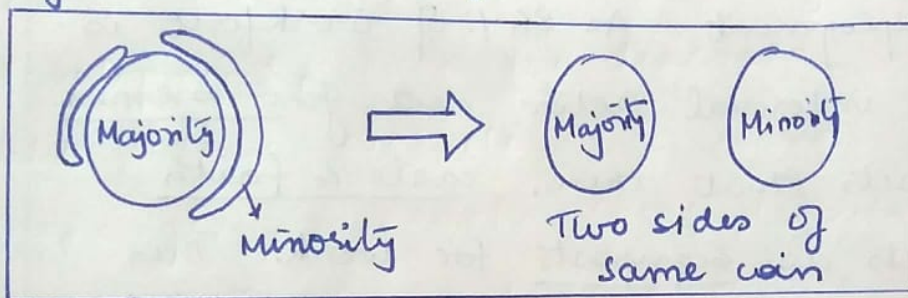 Majority
Minority
Majority
Minority
Two sides of
same coin